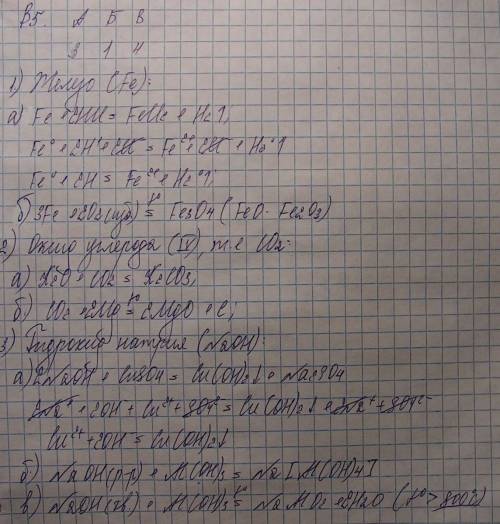 В5. А Б В
3 1 4
1) Железо (Fe):
а) Fe + 2HCl = FeCl2 + H2↑;
Fe⁰ + 2H⁺ + 2Cl⁻ = Fe²⁺ + 2Cl⁻ + H2⁰↑
Fe⁰ + 2H⁺ = Fe²⁺ + H2⁰↑;
б) 3Fe + 2O2(изб) t⁰= Fe3O4 (FeO · Fe2O3)
2) Оксид углерода (IV), т.е CO2:
а) K2O + CO2 = K2CO3;
б) CO2 + 2Mg t⁰= 2MgO + C;
3) Гидроксид натрия (NaOH):
а) 2NaOH + CuSO4 = Cu(OH)2↓ + Na2SO4
2Na⁺ + 2OH⁻ + Cu²⁺ + SO4²⁻ = Cu(OH)2↓ + 2Na⁺ + SO4²⁻
Cu²⁺ + 2OH⁻ = Cu(OH)2↓
б) NaOH(р-р) + Al(OH)3 = Na[Al(OH)4]
в) NaOH(тв) + Al(OH)3 t⁰= NaAlO2 + 2H2O (t⁰ > 800°C)